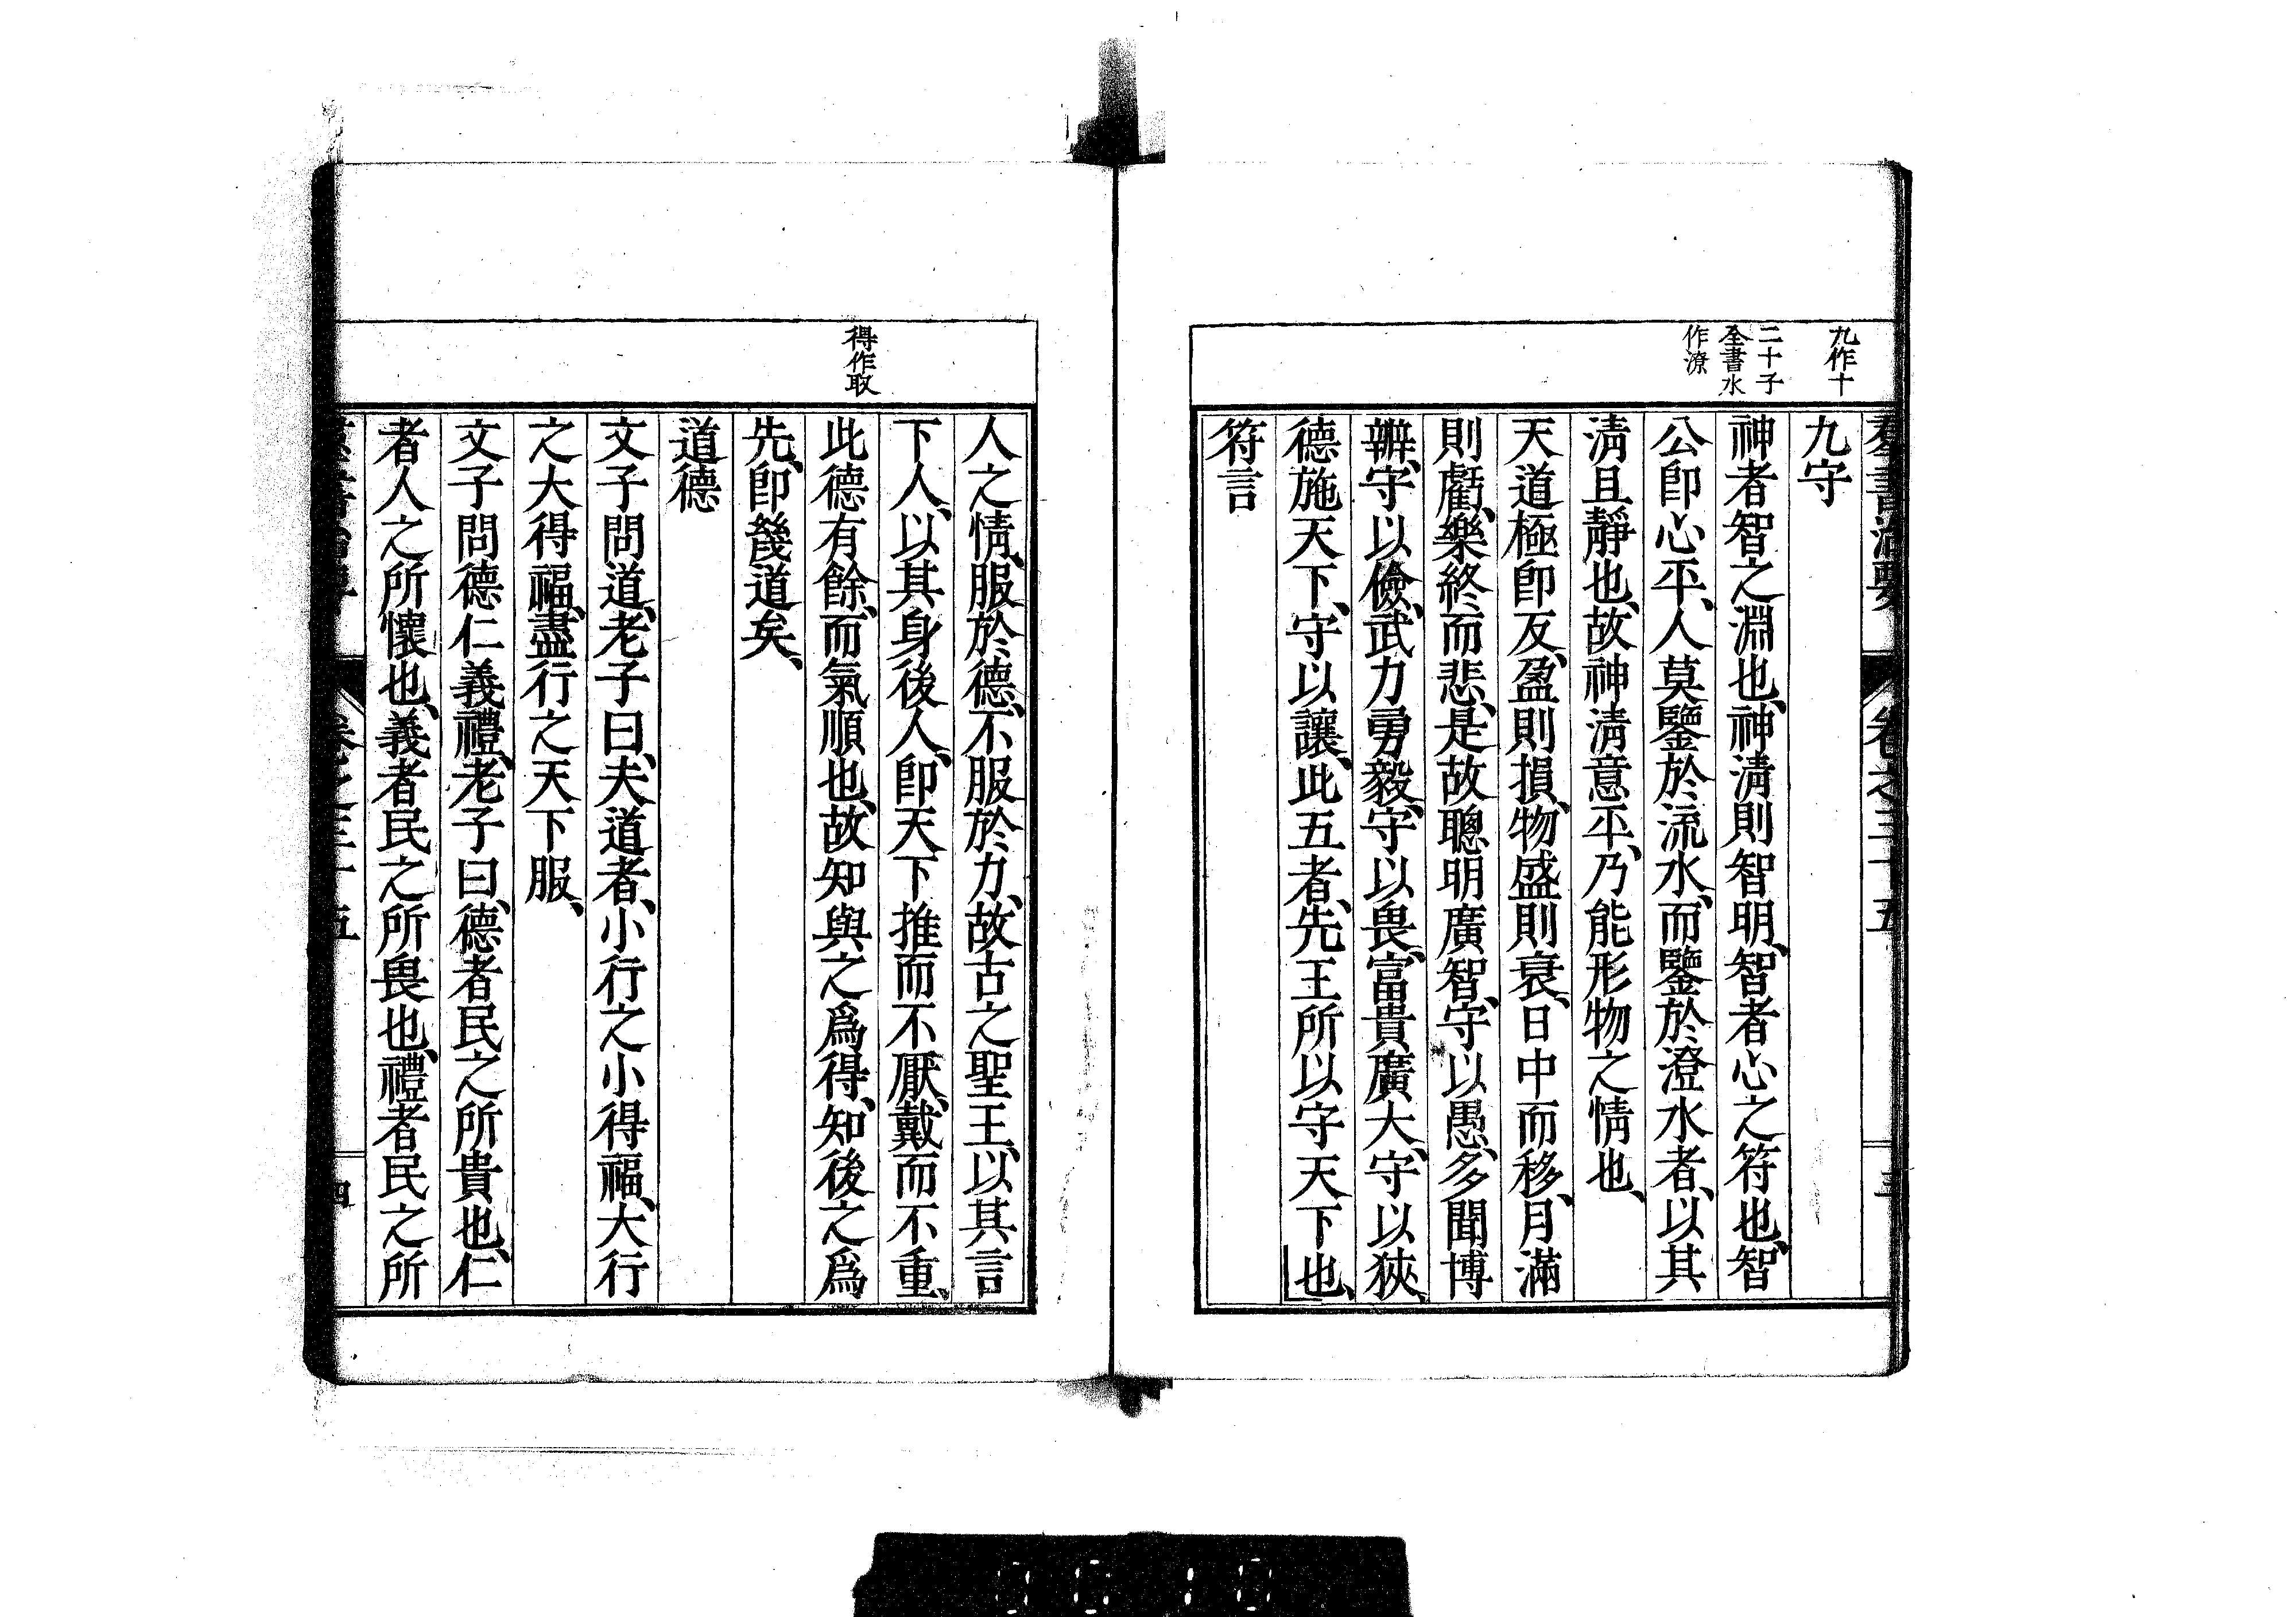 羣書治要 卷之三十五 三
九作十
二十子
全書水
作潦
九守
神者智之淵也、神淸則智明、智者心之符也、智
公卽心平、人莫鑒於流水、而鑒於澄水者、以其
淸且靜也、故神淸意平、乃能形物之情也、
天道極卽反、盈則損、物盛則衰、日中而移、月滿
則虧、樂終而悲、是故聰明廣智、守以愚、多聞博
辯、守以儉、武力勇毅、守以畏、富貴廣大、守以狹、
德施天下、守以讓、此五者、先王所以守天下也、
符言
得作取
人之情、服於德、不服於力、故古之聖王、以其言
下人、以其身後人、卽天下推而不厭、戴而不重、
此德有餘、而氣順也、故知與之爲得、知後之爲
先、卽幾道矣、
道德
文子問道、老子曰、夫道者、小行之小得福、大行
之大得福、盡行之天下服、
文子問德仁義禮、老子曰、德者民之所貴也、仁
者人之所懷也、義者民之所畏也、禮者民之所
卷之三十五 四